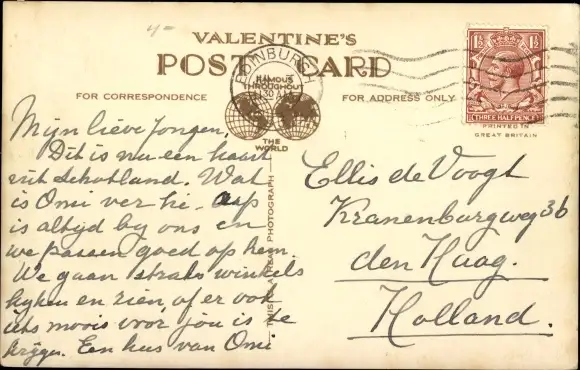 VALENTINE'S
POST CARD
EDINBURGH
FAMOUS
THROUGHOUT
THE
WORLD
FOR CORRESPONDENCE
FOR ADDRESS ONLY
1½ 1½
THREE HALF PENCE
PRINTED IN
GREAT BRITAIN
Mijn lieve Jongen,
Dit is nu een kaart
uit Schotland. Wat
is Omi ver hè. Aap
is altyd by ons en
we passen goed op hem.
We gaan straks winkels
kyken en zien of er ook
iets moois voor jou is te
krygen. Een kus van Omi
THIS IS A REAL PHOTOGRAPH
Ellis de Voogt
Kranenburgweg 36
den Haag.
Holland.